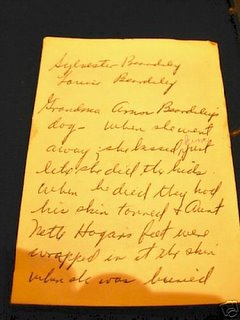 Sylvester Beardsley
Louis Beardsley
Grandma Amor Beardsley's
dog - when she went
away, she kissed just
like she did the kids.
When he died they had
his skin tanned & Aunt
Nett Hogan's feet were
wrapped in it the skin
when she was buried